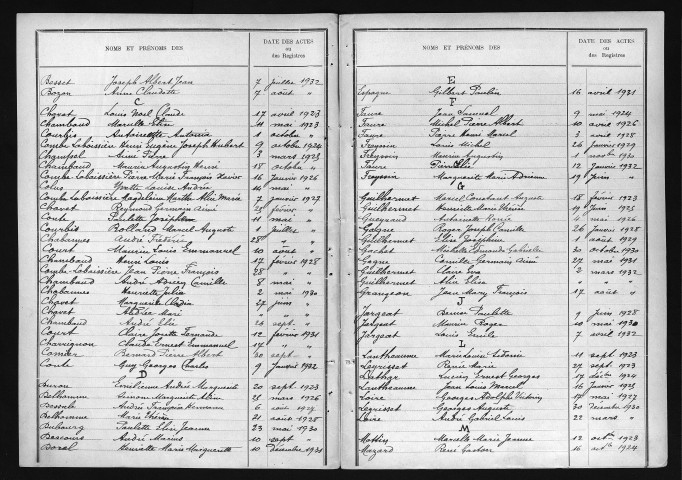 NOMS ET PRÉNOMS DES
DATE DES ACTES
ou
des Registres
Bosset Joseph Albert Jean 7 juillet 1932
Bozon Anna Claudette 7 août "
C
Chavet Louis Noël Claude 17 avril 1923
Chambaud Marcelle Elise 4 mai 1923
Courbis Antoinette Antonia 1 octobre "
Combe Labaissière Henri Eugène Joseph Hubert 9 octobre 1924
Champel Aimé Pierre 3 mars 1925
Chambaud Maurice Augustin Henri 18 octobre "
Combe Labaissière Pierre Marie François Xavier 16 Janvier 1926
Colus Yvette Louise Andrée 14 mai "
Combe Labaissière Magdeleine Marthe Alix Marie 7 janvier 1927
Chavet Raymond Germain Aimé 25 février "
Conte Paulette Josephine 9 mai "
Courbis Rolland Marcel Auguste 1 juillet "
Chabannes André Frédéric 28 " "
Court Maurice Louis Emmanuel 10 août "
Chambaud Henri Louis 17 février 1928
Combe-Labaissière Jean Pierre François 28 " "
Chambaud André Adrien Camille 8 mai "
Chabannes Henriette Julie 2 mai 1930
Chavet Marguerite 27 juin "
Chavet Marie " "
Chambaud André Elie 24 sept. "
Court Claire Josette Fernande 12 février 1931
Charrignon Claude Ernest Emmanuel 17 " "
Comier Bernard Pierre Albert 30 sept. "
Conte Guy Georges Charles 9 Janvier 1932
D
Duron Emilienne Andrée Marguerite 20 sept. 1923
Dethomme Simone Marguerite 25 mars 1926
André François 6 août 1929
Dethomme Marie Thérèse 21 août 1928
Dubourg Paulette Elise Jeanne 23 mai 1930
Descours André Marius 10 sept. "
Doral Henriette Marie Marguerite 10 décembre 1931
NOMS ET PRÉNOMS DES
DATE DES ACTES
ou
des Registres
E
Espagne Gilbert Paulin 16 avril 1931
F
Faure Jean Samuel 9 mai 1924
Faure Michel Pierre Albert 10 avril 1926
Faure Pierre Henri Marcel 3 avril 1928
Freyssin Louis Michel 26 janvier 1929
Freyssin Maurice Augustin 1 novbre 1930
Faure 12 Janvier 1932
Freyssin Marguerite Marie Adrienne 19 juin "
G
Guilhermet Marcel Constant Auguste 18 février 1923
Guilhermet Henriette Marie Thérèse 4 Juin 1925
Gueyraud Antoinette 1 mai 1926
Galogne Roger Joseph Camille 26 janvier 1928
Guilhermet Elise Joséphine 1 août 1929
Gachet Michelle Edmonde Gabrielle 30 octobre 1930
Gagne Camille Germain Aimé 27 mai 1931
Guilhermet Claire Eva 2 mars 1932
Guilhermet Aline Elise " "
Grangeon Jean Mary François 17 août "
J
Jargeat Denise Paulette 9 juin 1928
Jargeat Maurice Roger 10 mai 1930
Jargeat Louis Emile 7 avril 1932
L
Lantheaume Marie Louise 11 sept. 1923
Leyrisset René Marie 27 sept. 1923
Lucien Ernest Georges 17 décbre 1924
Lantheaume Jean Louis Marcel 16 Janvier 1925
Loire Georges Adolphe Victorin 17 mai 1927
Leyrisset Georges Auguste 30 décembre 1930
Loire André Gabriel Louis 22 mars "
M
Mottin Marcelle Marie Jeanne 12 octbre 1923
Mazard René Gaston 16 octbre 1924